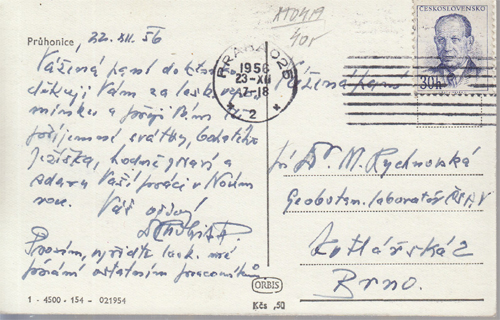 Průhonice, 22. XII. 56
Vážená paní doktorko,
děkuji Vám za lask.
mínku a přeji Vám
příjemné svátky, bohatého
Ježíška, hodně zdraví a
zdaru Vaší práci v Novém
roce.
Váš
Prosím, vyřiďte lask. mé
přání ostatním pracovníkům.
1 - 4500 - 154 - 021954
ČESKOSLOVENSKO
30h
PRAHA 025
1956
23-XII
17-18
2
Vážená paní
Dr. M. Rychnovská
Geobotan. laboratoř ČSAV
Kotlářská 2
Brno.
ORBIS
Kčs ,50